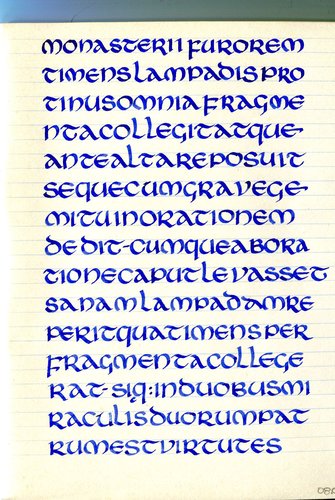 MONASTERII FUROREM
TIMENS LAMPADIS PRO
TINUS OMNIA FRAGME
NTA COLLEGIT ATQUE
ANTE ALTARE POSUIT
SEQUE CUM GRAVE GE
MITU IN ORATIONEM
DEDIT-CUMQUE AB ORA
TIONE CAPUT LEVASSET
SANAM LAMPADAM RE
PERIT QUA TIMENS PER
FRAGMENTA COLLEGE
RAT- SIQ: IN DUOBUS MI
RACULIS DUORUM PAT
RUM EST VIRTUTES